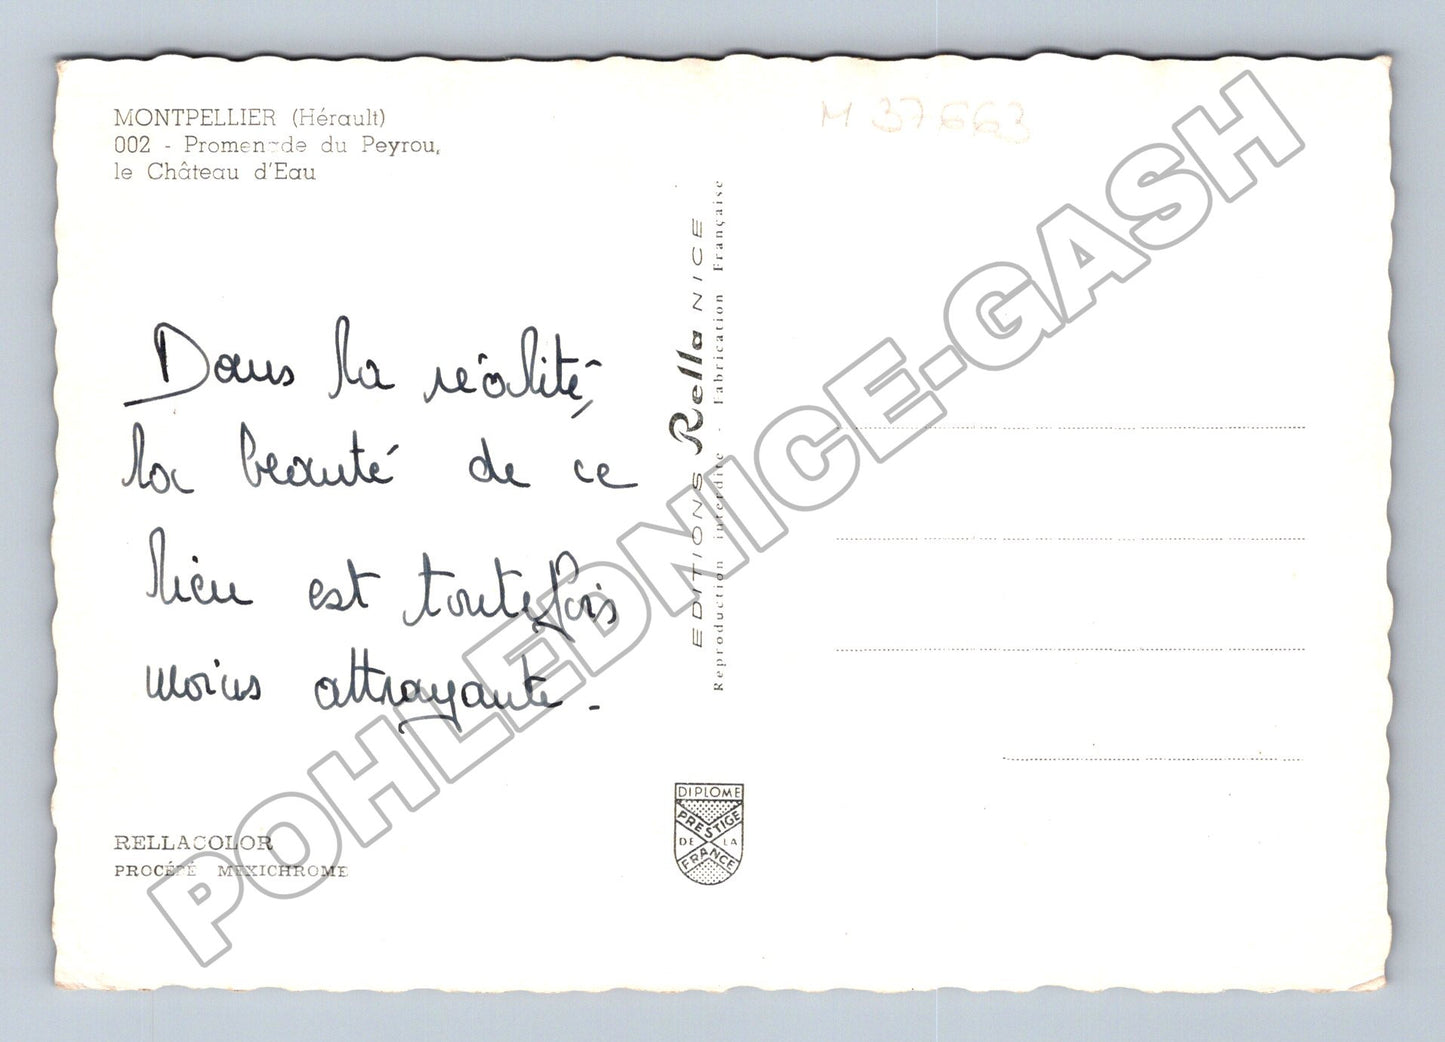 MONTPELLIER (Hérault)
002 - Promenade du Peyrou,
le Château d'Eau
M 37663
Dans la réalité,
la beauté de ce
lieu est toutefois
moins attrayante.
RELLACOLOR
PROCÉDÉ MEXICHROME
EDITIONS Rella NICE
Reproduction interdite - Fabrication Française
DIPLOME
PRESTIGE
DE LA
FRANCE
POHLEDNICE-GASH